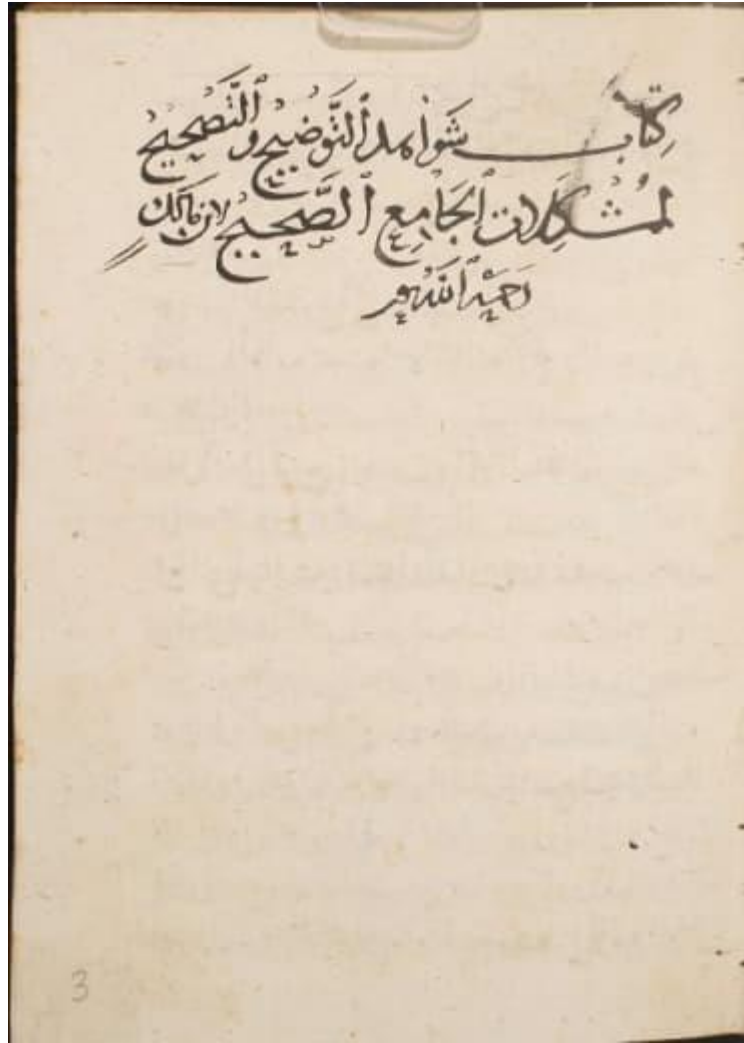 كِتَاب شَوَاهد ٱلتَّوضِيحِ وَٱلتَّصْحِيحِ
لمُشْكِلات ٱلجَامِعِ ٱلصَّحِيحِ لابن مالك
رحمه ٱلله
3